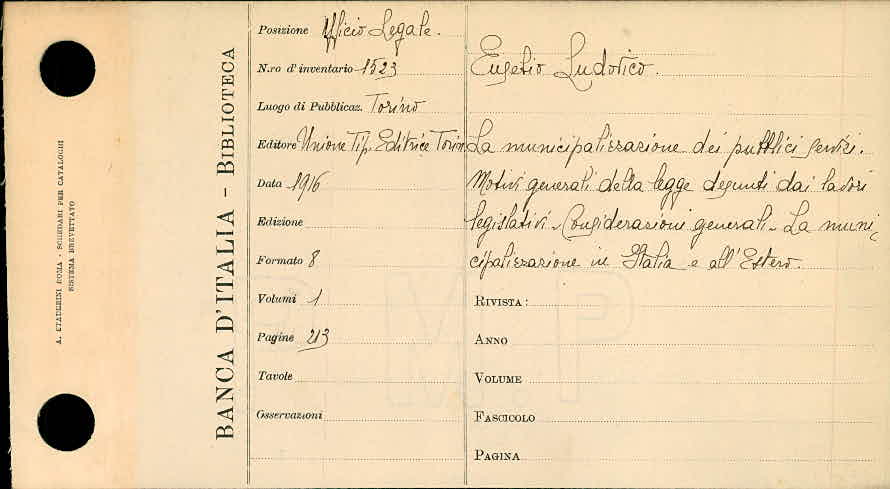 A. STADERINI ROMA - SCHEDARI PER CATALOGHI
SISTEMA BREVETTATO
BANCA D'ITALIA - BIBLIOTECA
Posizione Ufficio Legale.
N.ro d'inventario 1523
Luogo di Pubblicaz. Torino
Editore Unione Tip. Editrice Torin.
Data 1916
Edizione
Formato 8
Volumi 1
Pagine 213
Tavole
Osservazioni
Eugenio Ludovico.
La municipalizzazione dei pubblici servizi.
Motivi generali della legge desunti dai lavori
legislativi - Considerazioni generali - La muni-
cipalizzazione in Italia e all'Estero.
RIVISTA:
ANNO
VOLUME
FASCICOLO
PAGINA